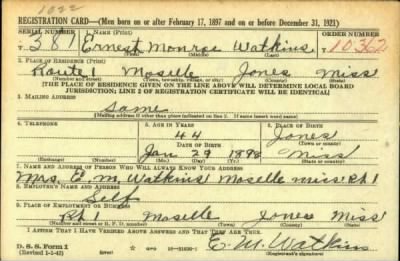 1022
REGISTRATION CARD—(Men born on or after February 17, 1897 and on or before December 31, 1921)
SERIAL NUMBER 1. NAME (Print) ORDER NUMBER
T- 381 Ernest Monroe Watkins T 10362
(First) (Middle) (Last)
2. PLACE OF RESIDENCE (Print)
Route 1 Moselle Jones Miss
(Number and street) (Town, township, village, or city) (County) (State)
[THE PLACE OF RESIDENCE GIVEN ON THE LINE ABOVE WILL DETERMINE LOCAL BOARD
JURISDICTION; LINE 2 OF REGISTRATION CERTIFICATE WILL BE IDENTICAL]
3. MAILING ADDRESS
Same
[Mailing address if other than place indicated on line 2. If same insert word same]
4. TELEPHONE 5. AGE IN YEARS 6. PLACE OF BIRTH
44 Jones
DATE OF BIRTH (Town or county)
Jan 29 1898 Miss
(Exchange) (Number) (Mo.) (Day) (Yr.) (State or country)
7. NAME AND ADDRESS OF PERSON WHO WILL ALWAYS KNOW YOUR ADDRESS
Mrs. E. M. Watkins Moselle miss Rt 1
8. EMPLOYER'S NAME AND ADDRESS
Self
9. PLACE OF EMPLOYMENT OR BUSINESS
Rt 1 Moselle Jones Miss
(Number and street or R. F. D. number) (Town) (County) (State)
I AFFIRM THAT I HAVE VERIFIED ABOVE ANSWERS AND THAT THEY ARE TRUE.
D. S. S. Form 1
(Revised 1-1-42) (over) E. M. Watkins
(Registrant's signature)